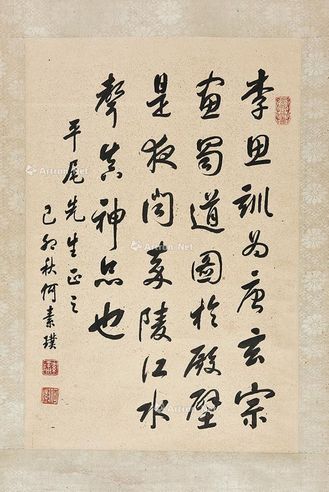 李思訓為唐玄宗
畫蜀道圖於殿壁
是夜聞嘉陵江水
聲真神品也
平尾先生正之
己卯秋何素璞